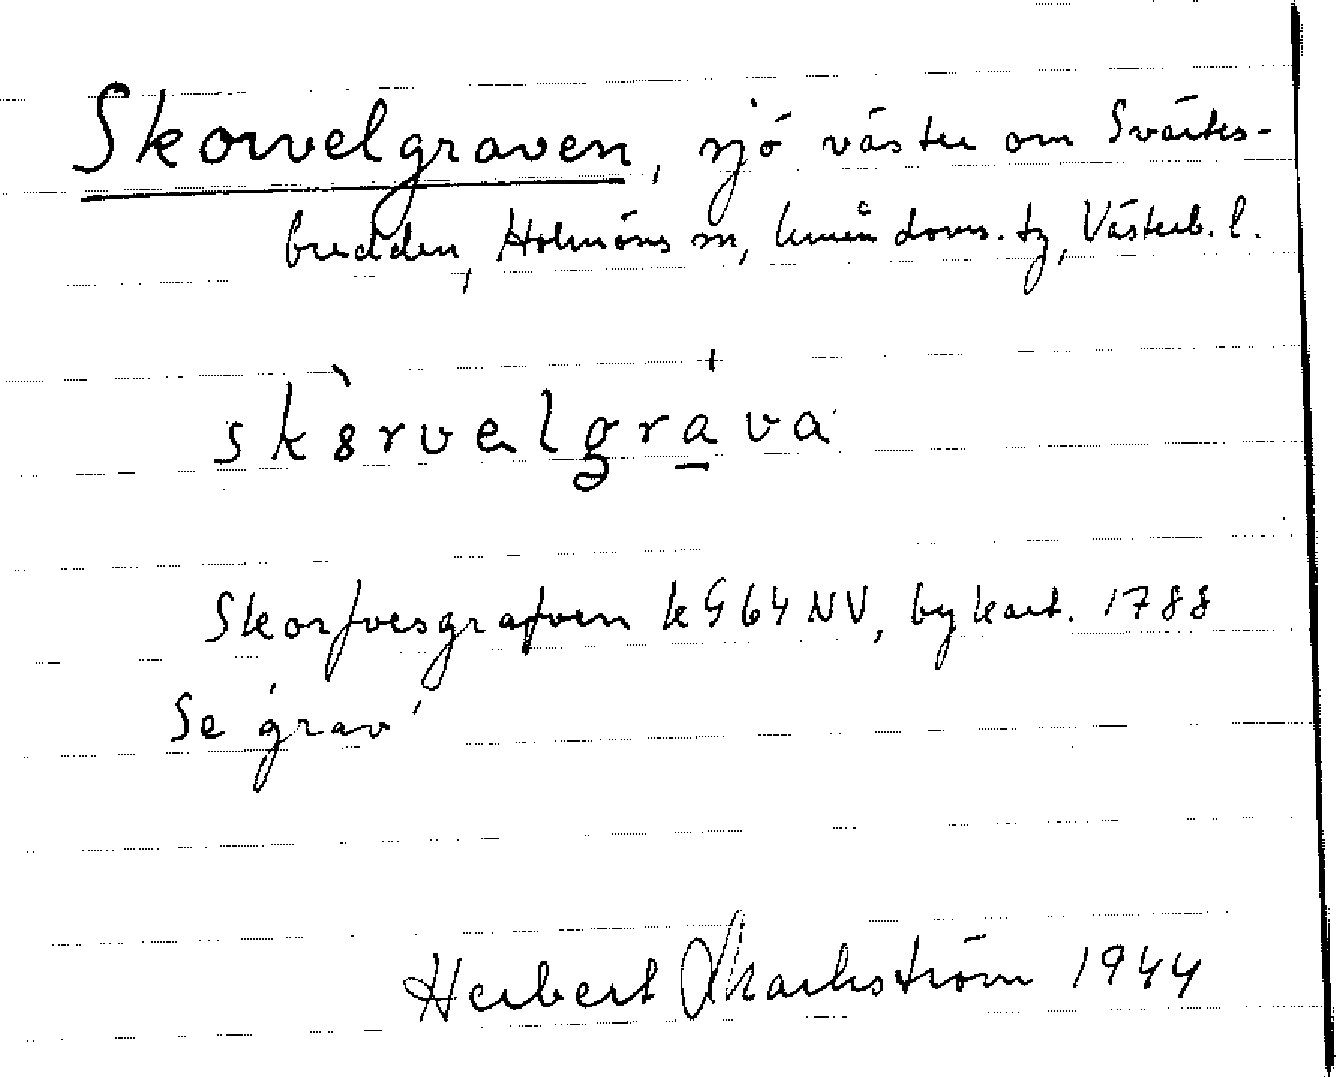 Skorvelgraven, sjö väster om Svartes-
bredden, Holmöns sn, Umeå doms. tg, Västerb. l.
sk8̀rvelgrava
Skorfvesgrafven k G 64 NV, bykart. 1788
Se 'grav'
Herbert Markström 1944